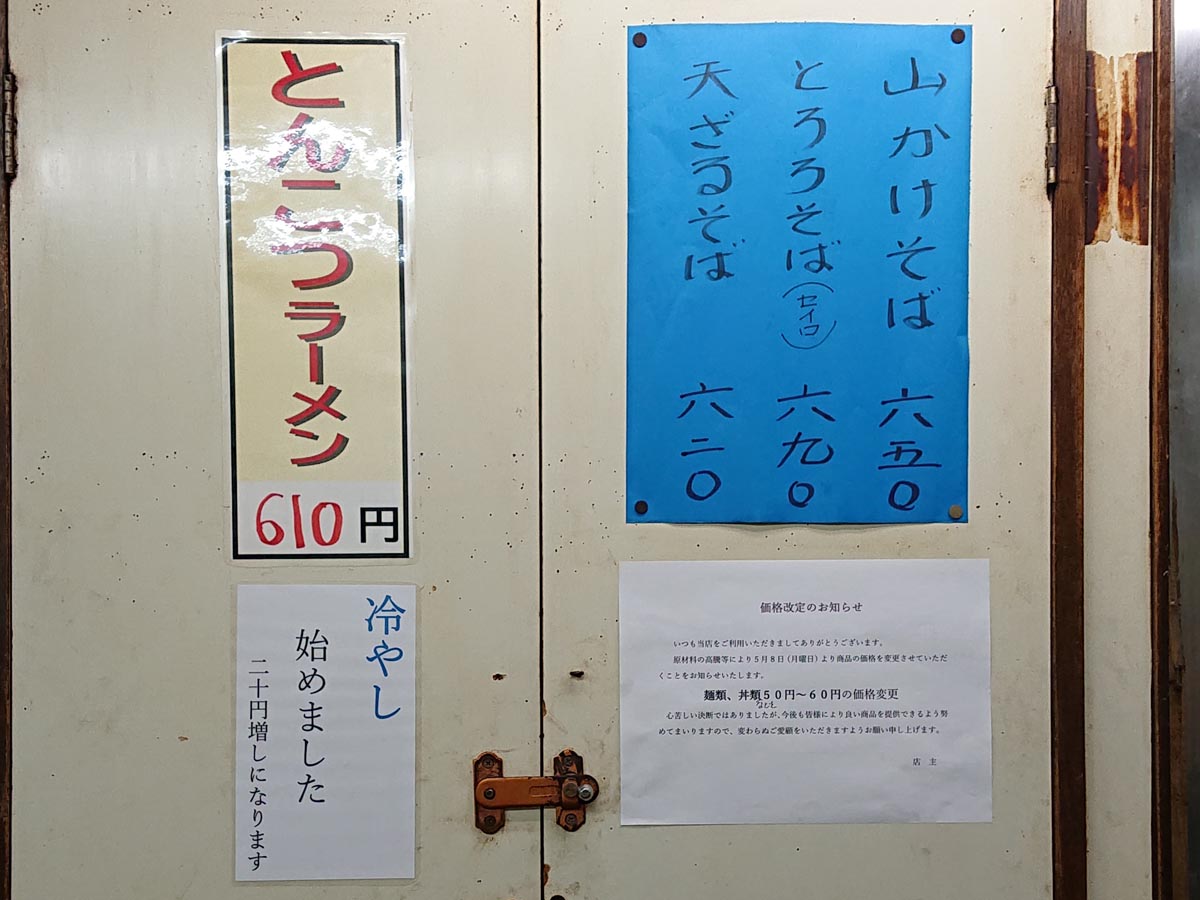 とんこつラーメン
610円
冷やし
始めました
二十円増しになります
山かけそば 六五〇
とろろそば(セイロ) 六九〇
天ざるそば 六二〇
価格改定のお知らせ
いつも当店をご利用いただきましてありがとうございます。
原材料の高騰等により5月8日(月曜日)より商品の価格を変更させていただ
くことをお知らせいたします。
麺類、丼類50円~60円の価格変更
心苦しい決断ではありましたが、今後も皆様により良い商品を提供できるよう努
めてまいりますので、変わらぬご愛顧をいただきますようお願い申し上げます。
店 主